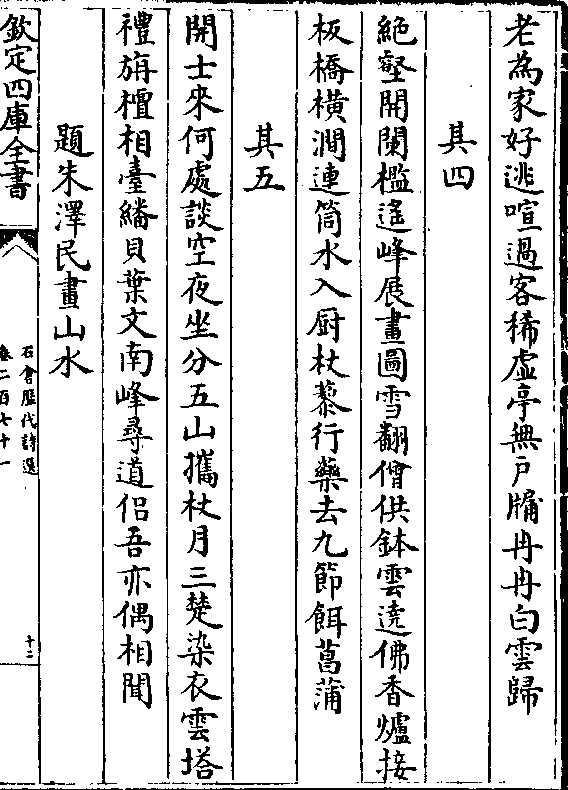 老為家好逃喧過客稀虛亭無戶牖冉冉白雲歸
其四
絶壑開闌檻遙峰展畫圖雪翻僧供鉢雲遶佛香爐接
板橋橫澗連筒水入厨杖藜行藥去九節餌菖蒲
其五
開士來何處談空夜坐分五山攜杖月三楚染衣雲塔
禮旃檀相臺繙貝葉文南峰尋道侶吾亦偶相聞
題朱澤民畫山水
欽定四庫全書
石倉歴代詩選
卷二百七十一
十二